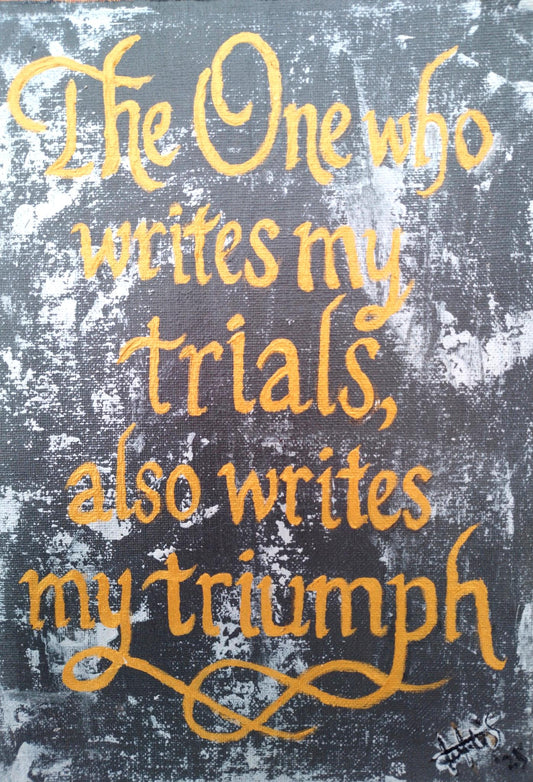 The One who
writes my
trials,
also writes
my triumph